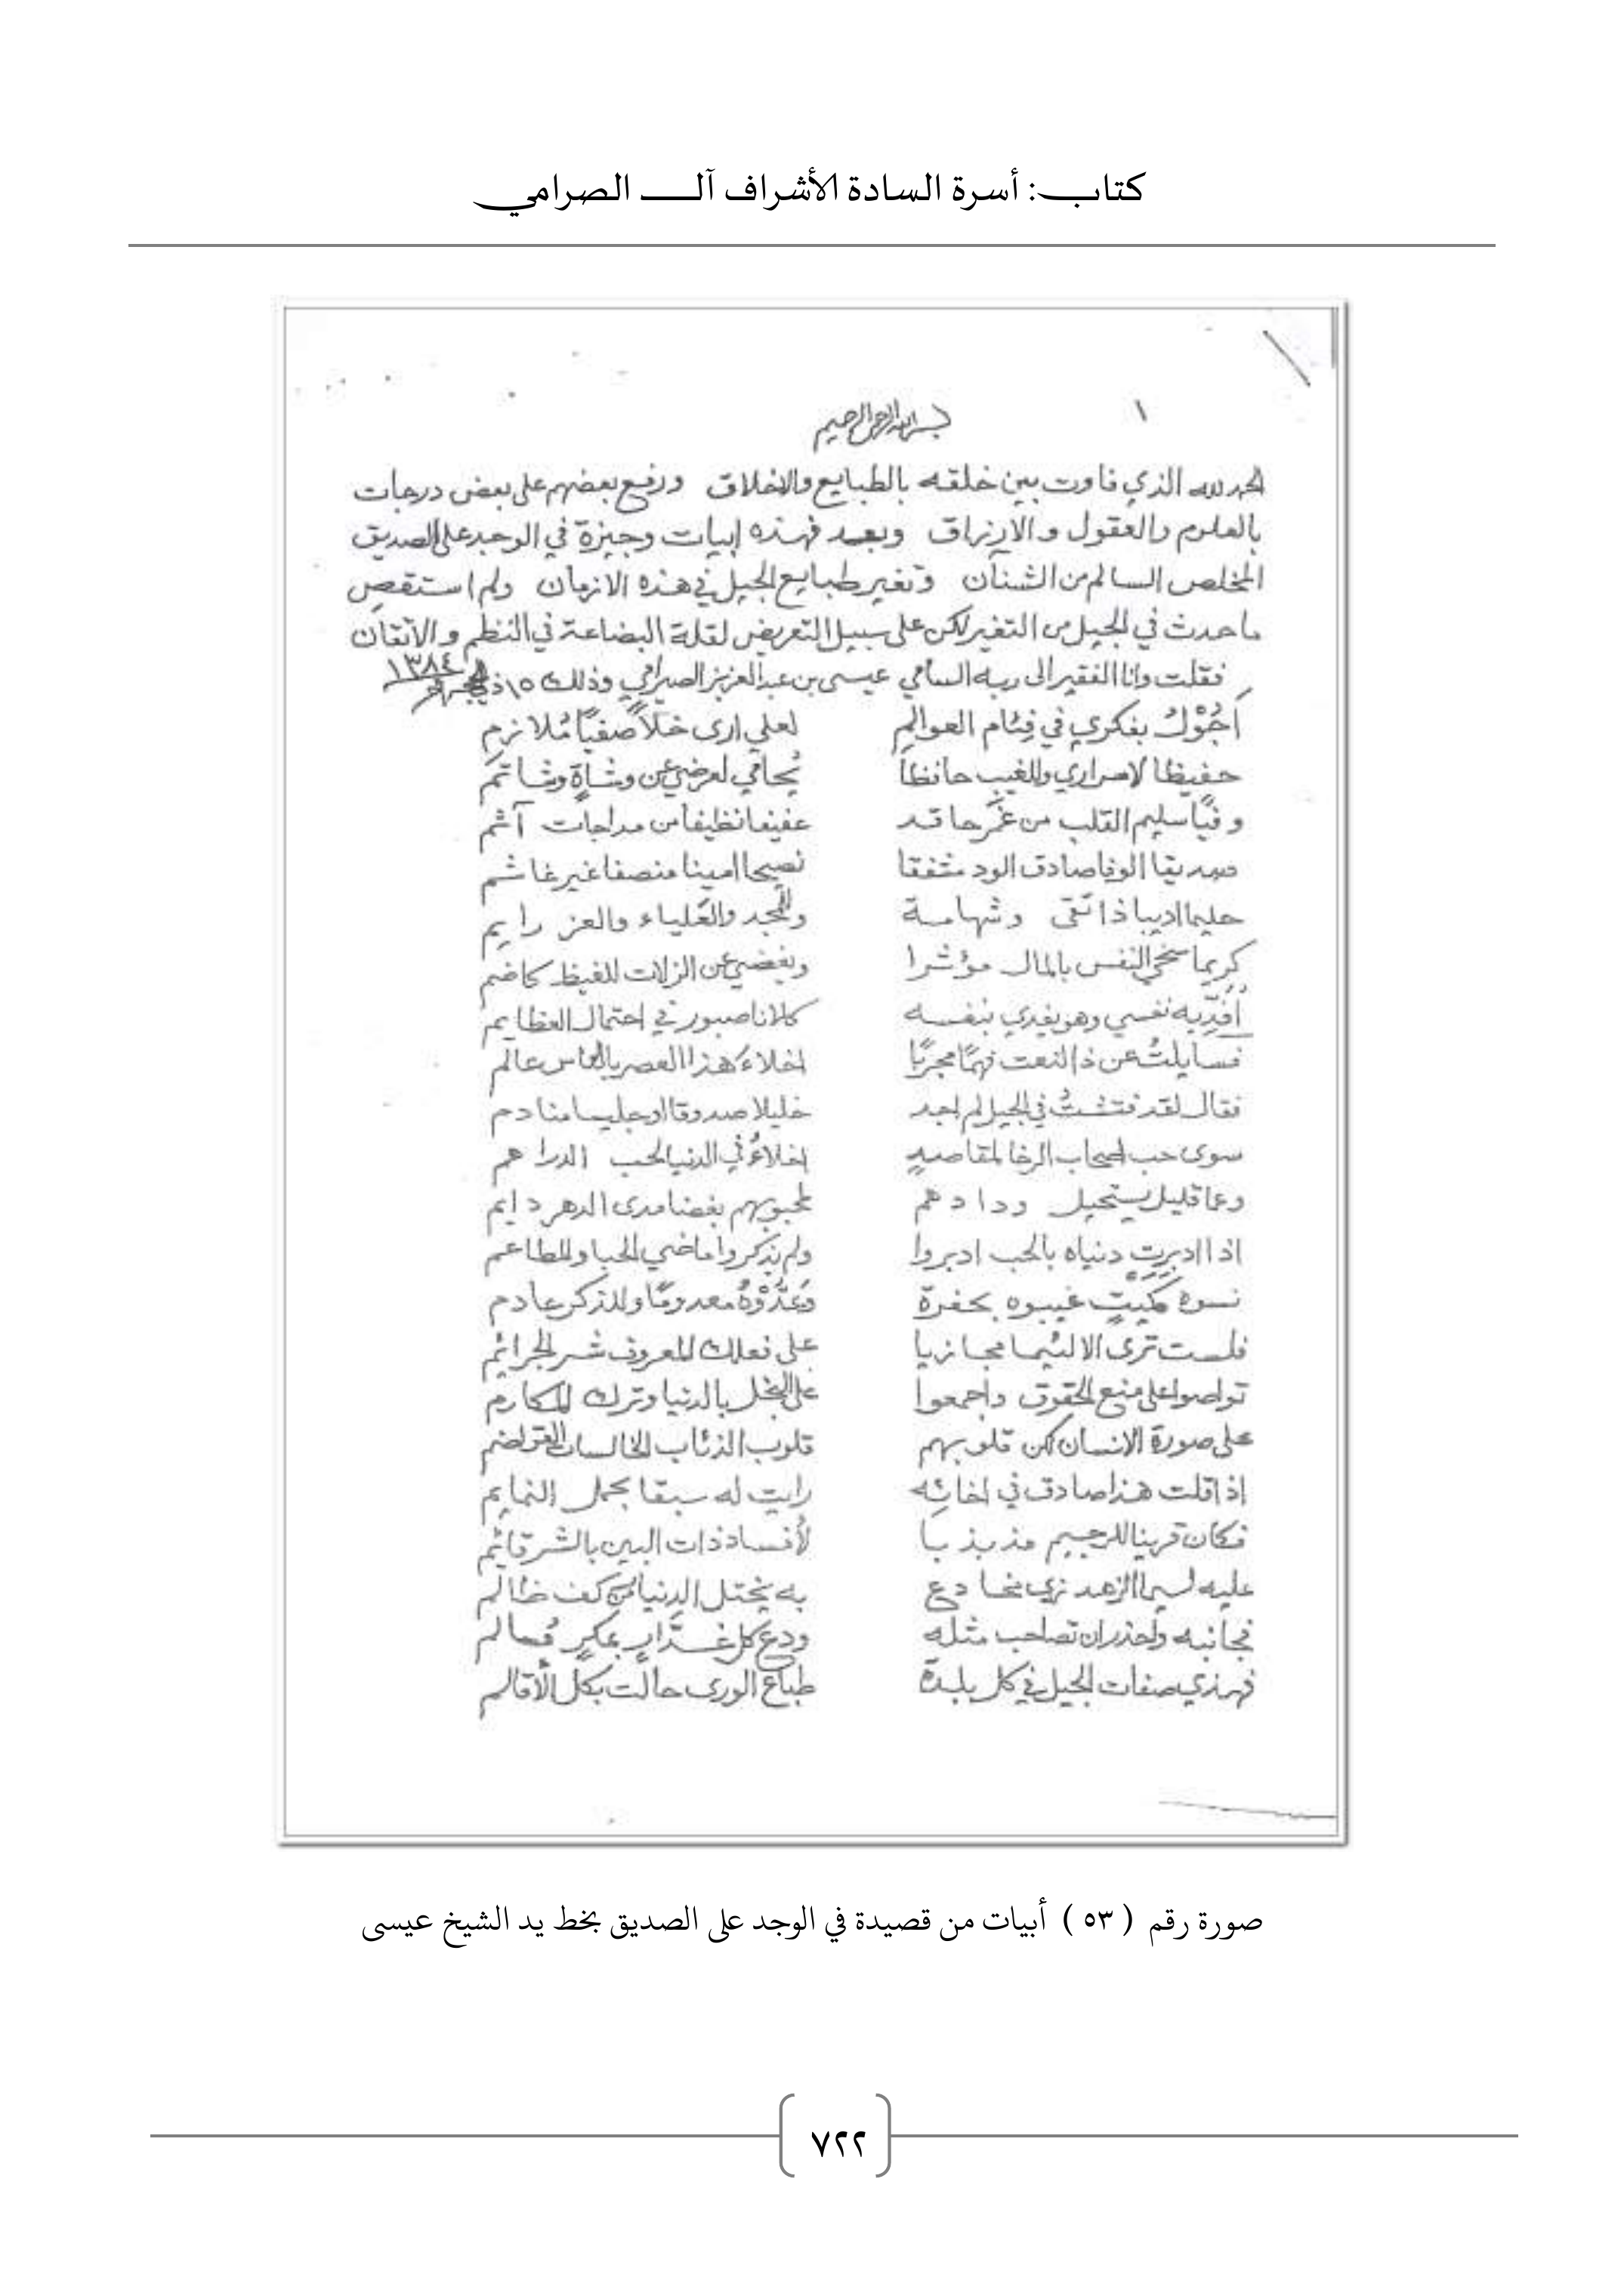 كتاب: أسرة السادة الأشراف آل الصرامي
١
بسم الله الرحمن الرحيم
الحمد لله الذي فاوت بين خلقه بالطبايع والاخلاق ورفع بعضهم على بعض درجات
بالعلوم والعقول والارزاق وبعد فهذه ابيات وجيزة في الوجد على الصديق
المخلص السالم من الشنآن وتغير طبايع الجيل في هذه الازمان ولم استقصِ
ماحدث في الجيل من التغير لكن على سبيل التعريض لقلة البضاعة في النظم والاتقان
فقلت وانا الفقير الى ربه السامي عيسى بن عبدالعزيز الصرامي وذلك ١٥ ١٣٨٤
أَجُوْلُ بفكري في فِئام العوالمِ لعلي ارى خلاً صفيًا مُلازم
حفيظا لاسراري وللغيب حافظاً يُحامي لعرضي عن وشاةٍ وشاتم
وفيًا سليم القلب من حاقد عفيفا نظيفا من مداجات آثم
صديقا الوفا صادق الود مشفقا نصيحا امينا منصفا غير غاشم
حليما اديبا ذا تقى وشهامة وللمجد والعلياء والعز رايم
كريما سخي النفس بالمال مؤثرا ويغضي عن الزلات للغيظ كاضم
أفدّيه نفسي وهو يفدي بنفسه كلانا صبور في احتمال العظايم
فسايلتُ عن ذا النعت فهمًا مجربًا اخلاءَ هذا العصر بالناس عالم
فقال لقد فتشتُ في الجيل لم اجد خليلا صدوقا او جليسا منادم
سوى حب اصحاب الرخا لمقاصدٍ اخلاءُ في الدنيا لحب الدراهم
وعا قليل يستحيل ودادهم لمحبوبهم بغضا مدى الدهر دايم
اذا ادبرت دنياه بالحب ادبروا ولم يذكروا ماضي الحبا والمطاعم
نسوه كميتٍ غيبوه بحفرة وَعَدُّوْهُ معدومًا وللذكر عادم
فلست ترى الا لئيما مجازيا على فعلك المعروف شر الجرائم
تواصوا على منع الحقوق واجمعوا على البخل بالدنيا وترك المكارم
على صورة الانسان لكن قلوبهم قلوب الذئاب الخالسات القواضم
اذا قلت هذا صادق في اخائه رايت له سبقا بحمل النمايم
فكان قرينا للرجيم مذبذبا لأفساد ذات البين بالشر قائم
عليه لسيما الزهد زي مخادع به يختل الدنيا من كف ظالم
فجانبه واحذر ان تصاحب مثله ودع كل غدَّارٍ بمكرٍ مُسالم
فهذي صفات الجيل في كل بلدة طباع الورى حالت بكل الأقالم
صورة رقم ( ٥٣ ) أبيات من قصيدة في الوجد على الصديق بخط يد الشيخ عيسى
٧٢٢